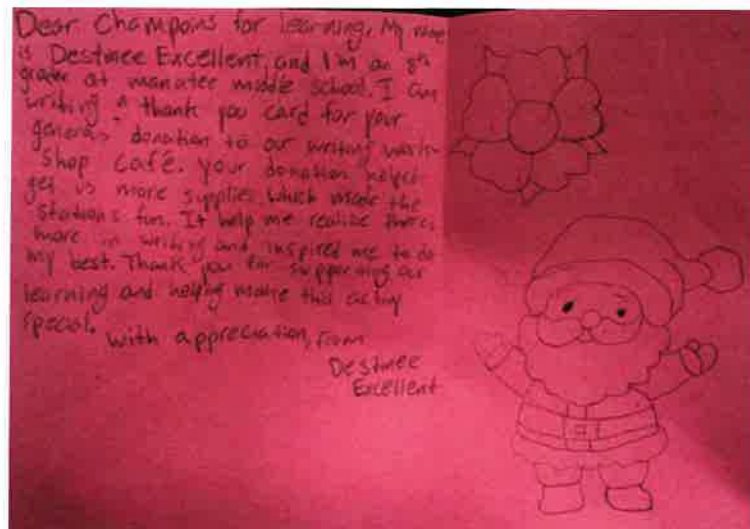 Dear Champoins for learning, My name
is Destinee Excellent, and I'm an 8th
grader at manatee middle school. I am
writing a thank you card for your
generas donation to our writing work-
shop café. your donation helped
get us more supplies, which made the
stations fun. It help me realize theres
more in writing and inspired me to do
my best. Thank you for supporting our
learning and helping make this activy
special.
with appreciation, from
Destinee
Excellent